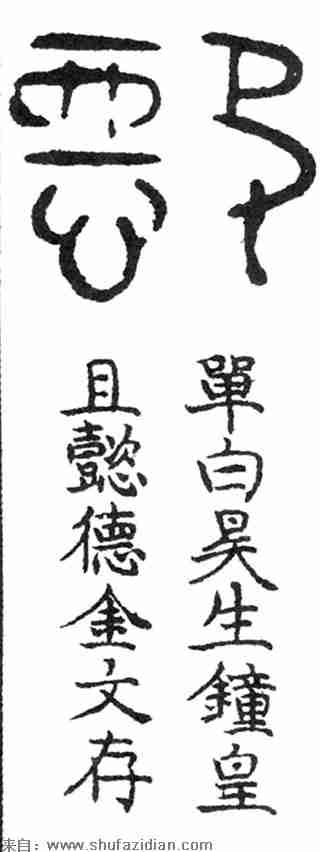 單白昊生鐘皇
且懿德金文存
来自：www.shufazidian.com